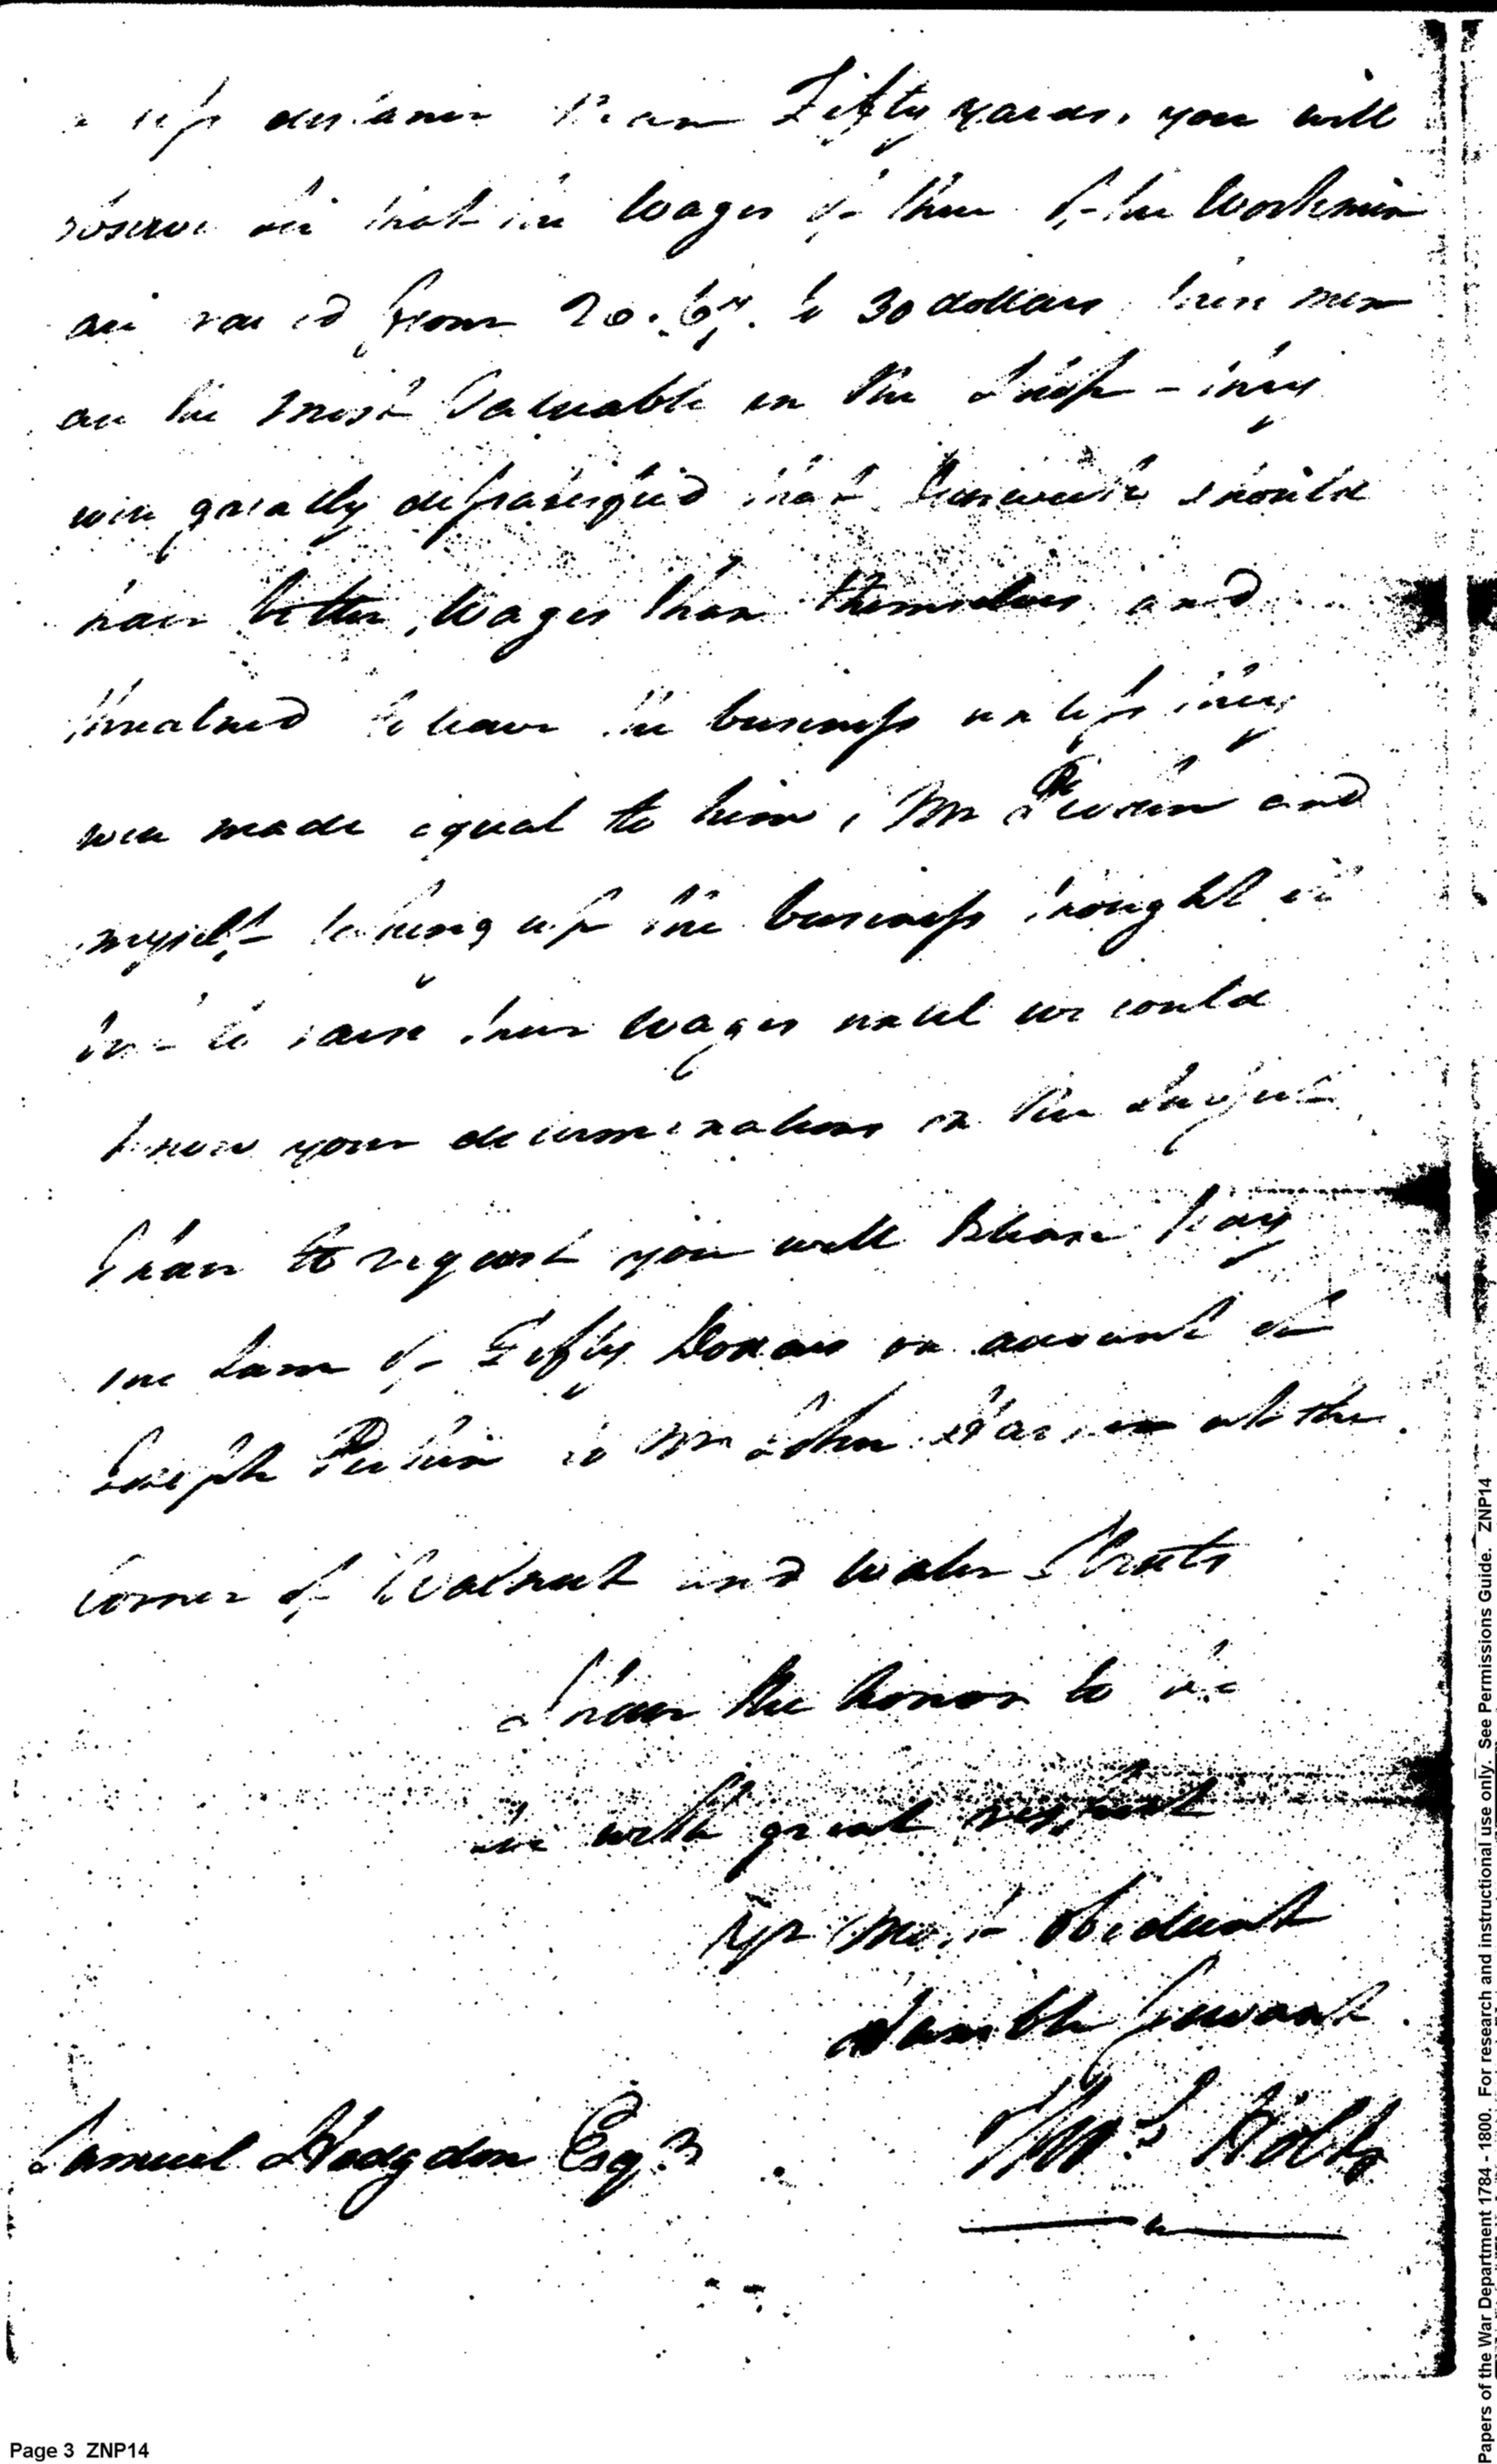 a less distance than Fifty yards. you will
observe sir that the Wages of three of the Workmen
are raised from 26.67. to 30 dollars these men
are the most Valuable in the Shop - they
were greatly dissatisfied that should
have better Wages than themselves and
threatned to leave the business unless they
were made equal to him, Mr Perkin and
myself talking up the business thought it
best to raise their Wages until we could
know your determination on the Subject
I have to request you will please pay
the Sum of Fifty Dollars on account of
Joseph Perkin to Mr John at the
Corner of Walnut and Water Streets
I have the honor to be
Sir with great respect
Yr Most Obedient
Humble Servant
Samuel Hodgdon Esqr.
Thos Holts
Page 3 ZNP14
Papers of the War Department 1784 - 1800. For research and instructional use only. See Permissions Guide. ZNP14